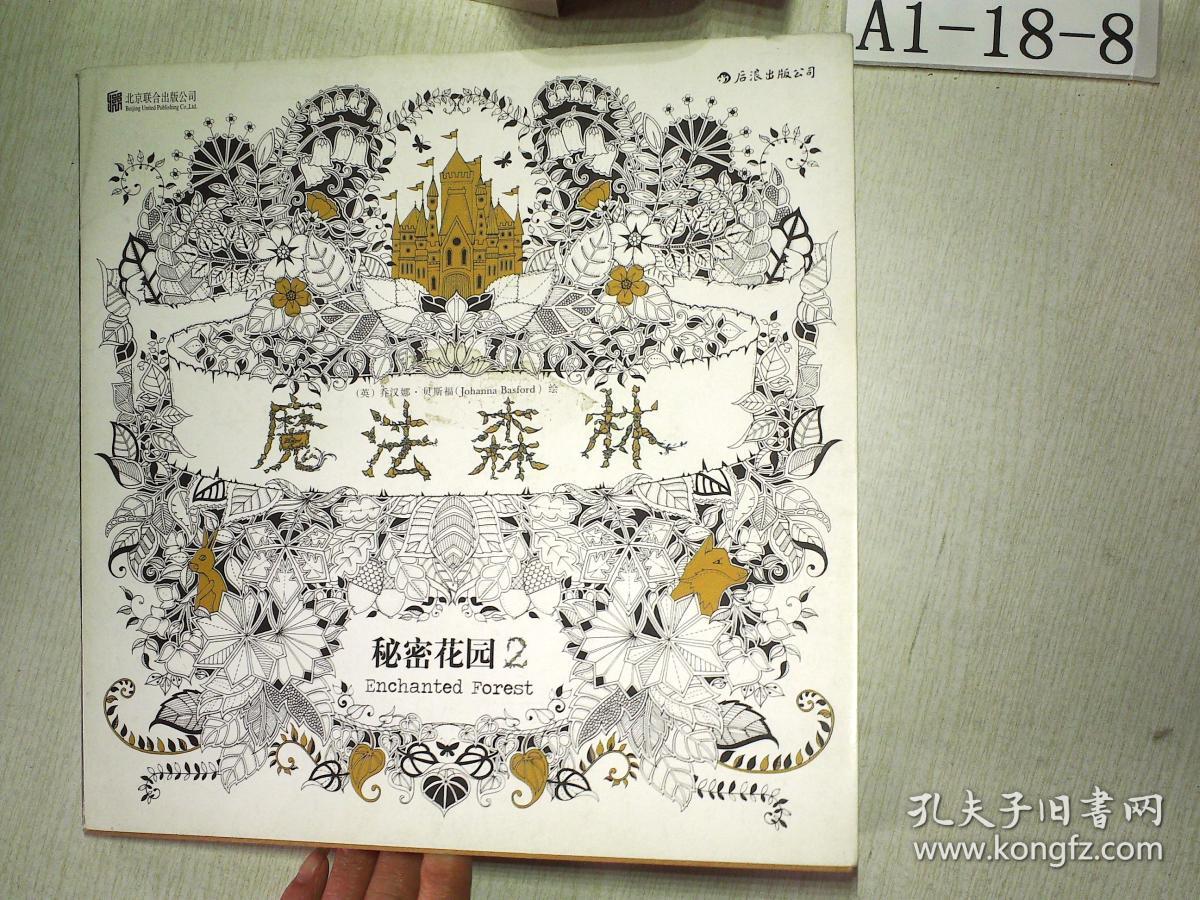 A1-18-8
北京联合出版公司
Beijing United Publishing Co.,Ltd.
后浪出版公司
（英）乔汉娜·贝斯福（Johanna Basford）绘
魔法森林
秘密花园2
Enchanted Forest
孔夫子旧书网
www.kongfz.com